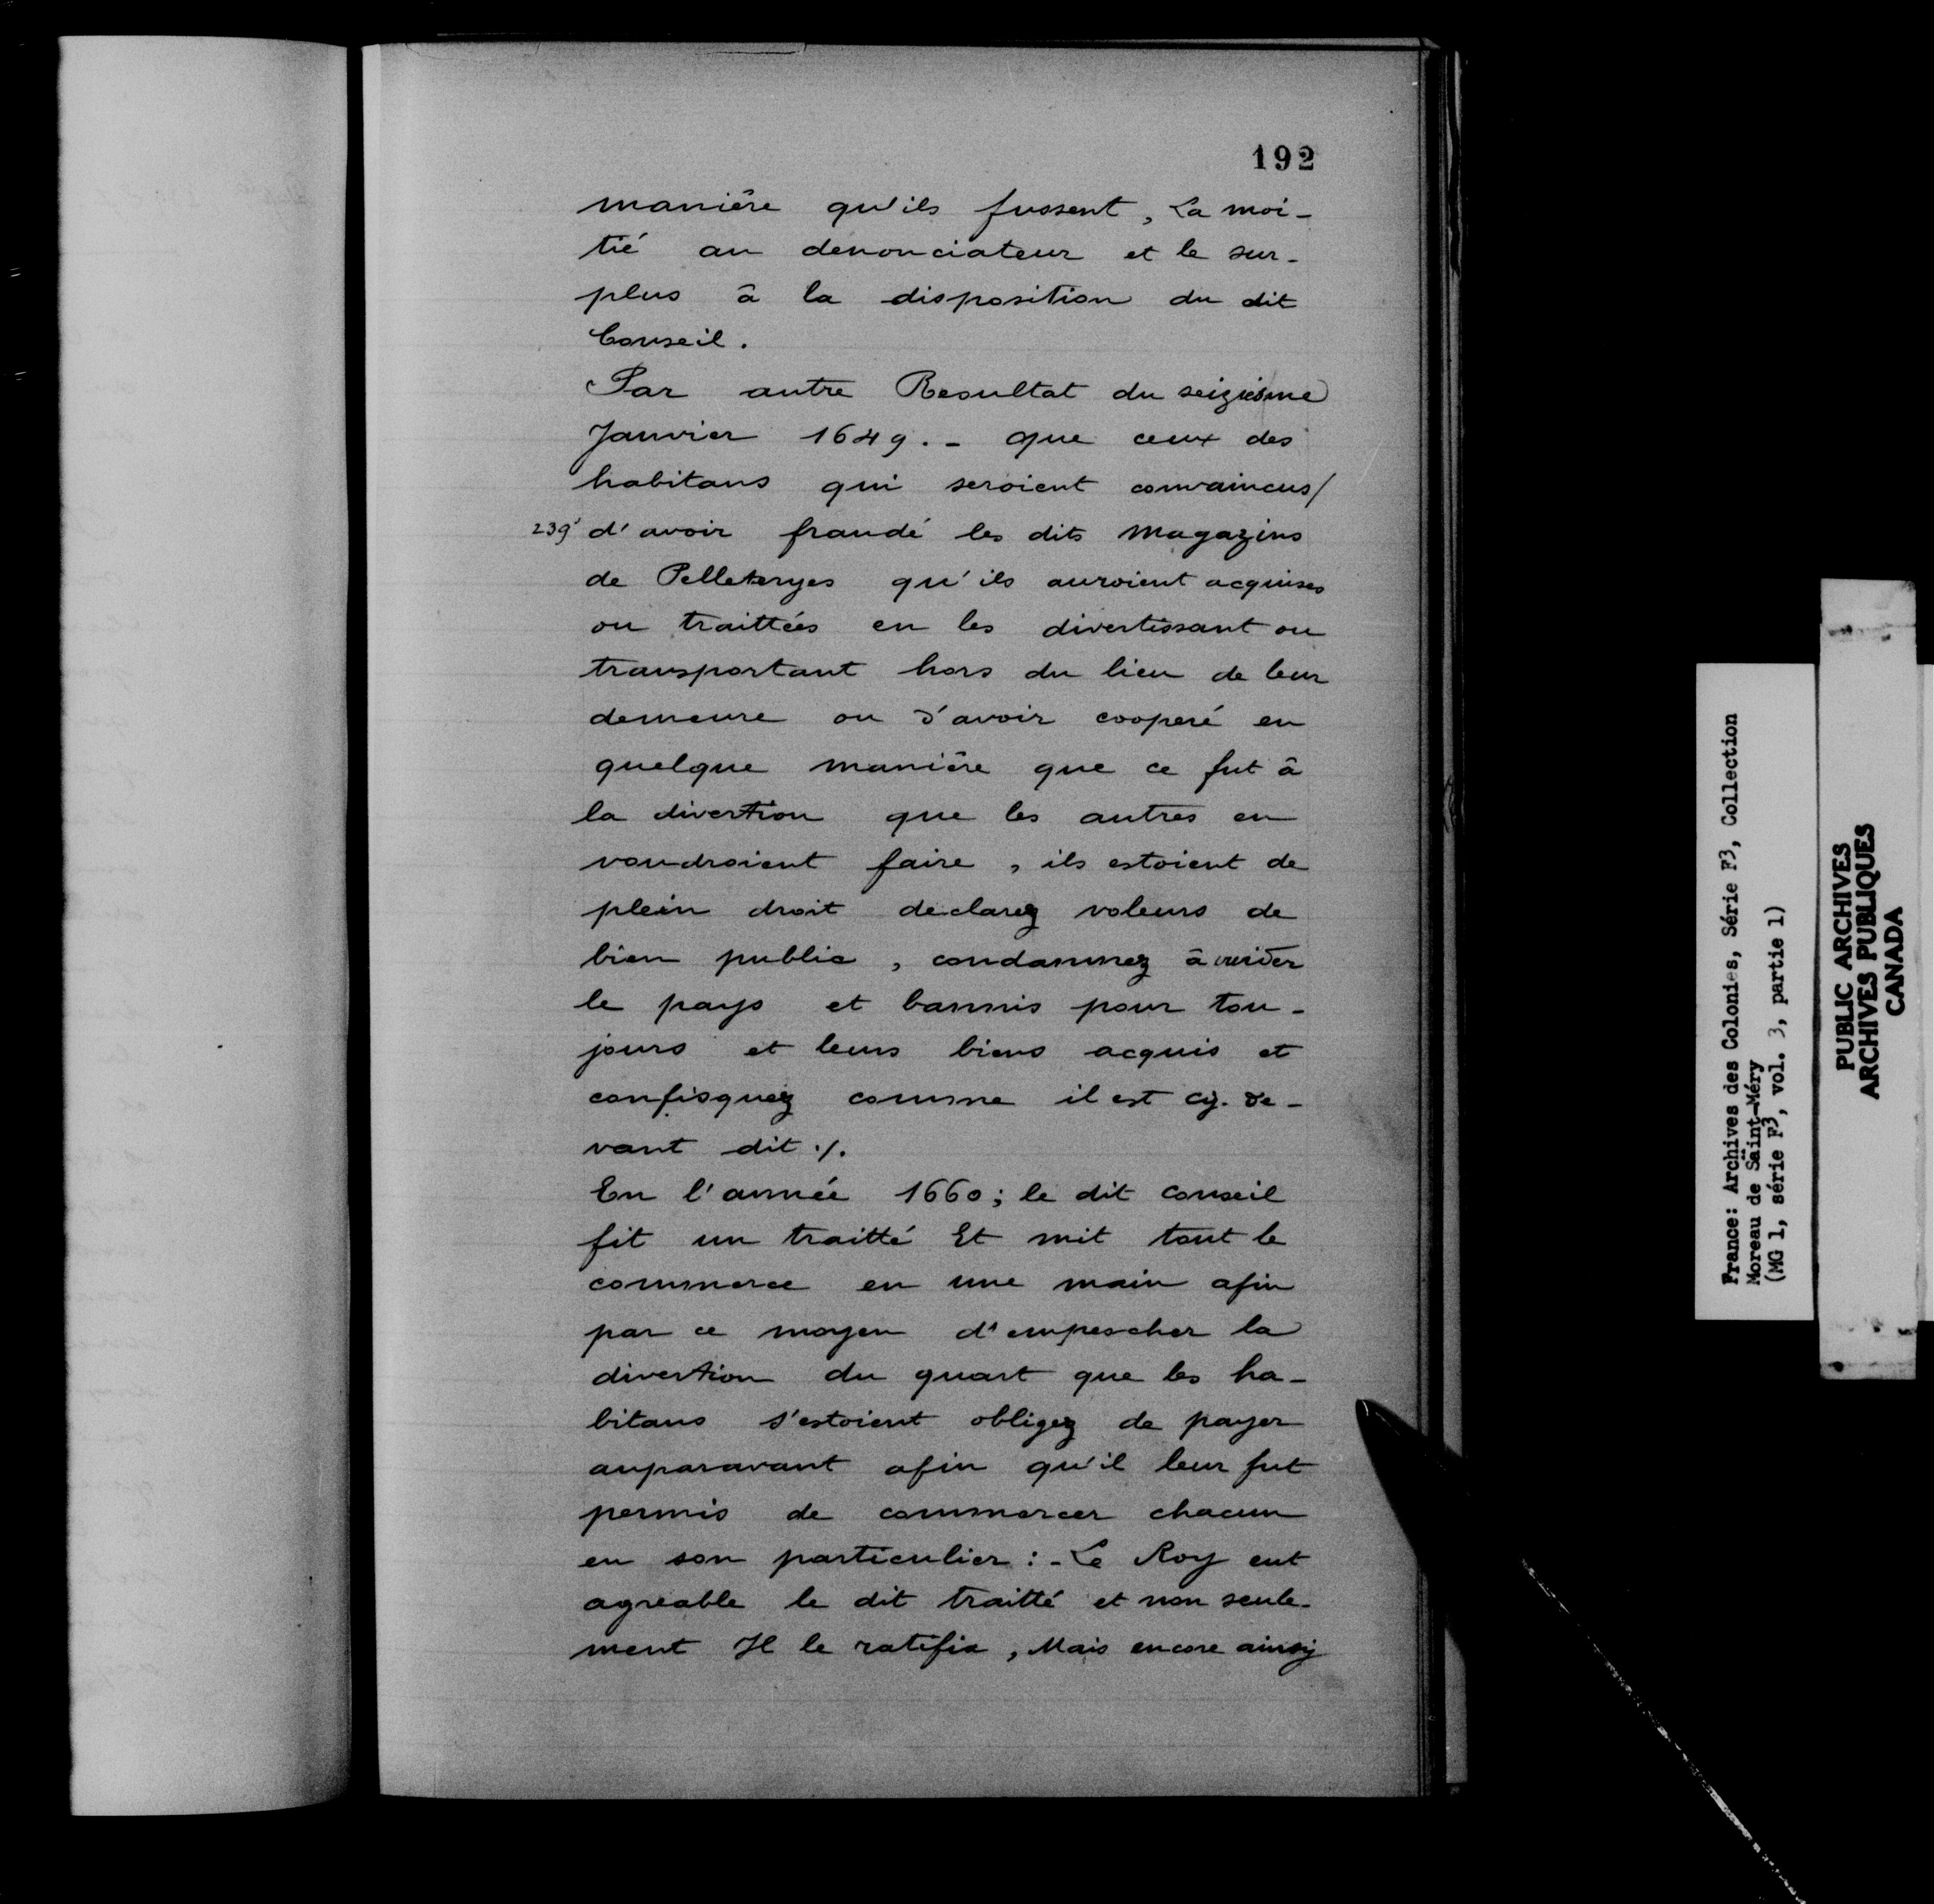 192
manière qu'ils fussent, La moi-
tié au denonciateur et le sur-
plus à la disposition du dit
Conseil.
Par autre Resultat du seiziesme
Janvier 1649. - que ceux des
habitans qui seroient convaincus/
239' d'avoir fraudé les dits magazins
de Pelleteryes qu'ils auroient acquises
ou traittées en les divertissant ou
transportant hors du lieu de leur
demeure ou d'avoir cooperé en
quelque manière que ce fut à
la divertion que les autres en
voudroient faire, ils estoient de
plein droit declarez voleurs de
bien public, condamnez à vuider
le pays et bannis pour tou-
jours et leurs biens acquis et
confisquez comme il est cy. de-
vant dit ./.
En l'année 1660; le dit conseil
fit un traitté Et mit tout le
commerce en une main afin
par ce moyen d'empescher la
divertion du quart que les ha-
bitans s'estoient obligez de payer
auparavant afin qu'il leur fut
permis de commercer chacun
en son particulier: - Le Roy eut
agreable le dit traitté et non seule-
ment Il le ratifia, Mais encore ainsy
France: Archives des Colonies, Série F3, Collection
Moreau de Saint-Méry
(MG 1, série F3, vol. 3, partie 1)
PUBLIC ARCHIVES
ARCHIVES PUBLIQUES
CANADA